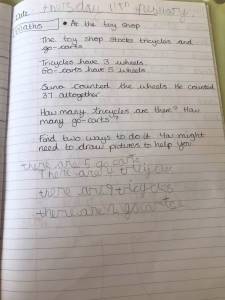 Date Thursday 11th February
Maths • At the toy shop
The toy shop stocks tricycles and
go-carts
Tricycles have 3 wheels.
Go-carts have 5 wheels
Suno counted the wheels. He counted
37 altogether.
How many tricycles are there? How
many go-carts?
Find two ways to do it. You might
need to draw pictures to help you.
there are 5 go carts
There are 4 tricycles
there are 9 tricycles
there are 2 go carts